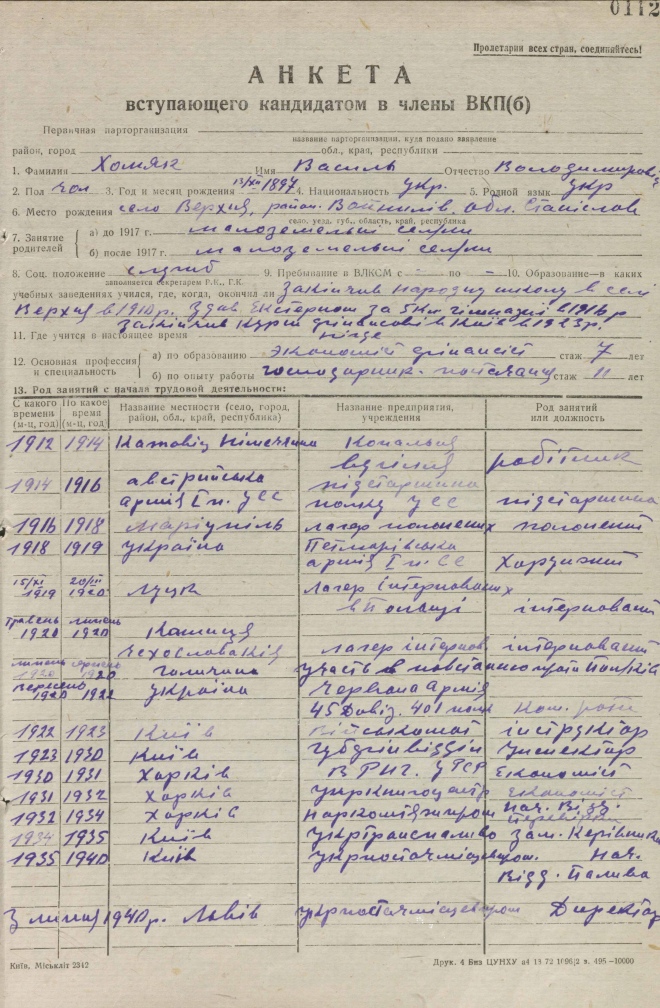 0112
Пролетарии всех стран, соединяйтесь!
АНКЕТА
вступающего кандидатом в члены ВКП(б)
Первичная парторганизация
название парторганизации, куда подано заявление
район, город обл., края, республики
1. Фамилия Хомяк Имя Василь Отчество Володимирович
2. Пол чол 3. Год и месяц рождения 13/XII 1897 4. Национальность укр. 5. Родной язык укр
6. Место рождения село Верхня, район. Войнилів. обл. Станіслав
село, уезд, губ., область, край, республика
7. Занятие родителей
а) до 1917 г. малоземельні селяни
б) после 1917 г. малоземельні селяни
8. Соц. положение службов 9. Пребывание в ВЛКСМ с – по – 10. Образование—в каких
заполняется секретарем Р.К., Г.К.
учебных заведениях учился, где, когда, окончил ли закінчив народну школу в селі
Верхня в 1910р. Здав Екстерном за 5 кл гімназії в 1916 р
закінчив курси фінансові в Київ в 1923 р.
11. Где учится в настоящее время ніде
12. Основная профессия и специальность
а) по образованию Економіст фінансіст стаж 7 лет
б) по опыту работы господарник. постачанец стаж 11 лет
13. Род занятий с начала трудовой деятельности:
С какого времени (м-ц, год) По какое время (м-ц, год) Название местности (село, город, район, обл., край, республика) Название предприятия, учреждения Род занятий или должность
1912 1914 Катовіц Німеччина Копальня
вугілля робітник
1914 1916 австрийська підстаршина
армія І п. УСС полку УСС підстаршина
1916 1918 Маріуполь лагер полонених полонений
1918 1919 Україна Петлюрівська
армія І п. СС Хорунжий
15/XI 1919 20/III 1920 Луцк Лагер інтернованих
в Польщі інтернований
травень 1920 липень 1920 Кошиця
Чехословакія лагер інтернов. інтернований
липень 1920 серпень 1920 Галичина участь в повстанню проти Поляків
червень 1920 1922 Україна Червона Армія
45 Дивіз. 401 полк Ком. роти
1922 1923 Київ Військомат інструктор
1923 1930 Київ Губфінвідділ Інспектор
1930 1931 Харків ВРНГ. УРСР Економіст
1931 1932 Харків Укркнигоцентр Економіст
1932 1934 Харків Наркомтяжпром Нач. Відд.
1934 1935 Київ Укртранспаливо Зам. Керівника
1935 1940 Київ Укрпостачмісцевпром. Нач.
Відд. Палива
З липня 1940 р. Львів Укрпостачмісцевпром Директор
Київ, Міськліт 2342 Друк. 4 Биз ЦУНХУ